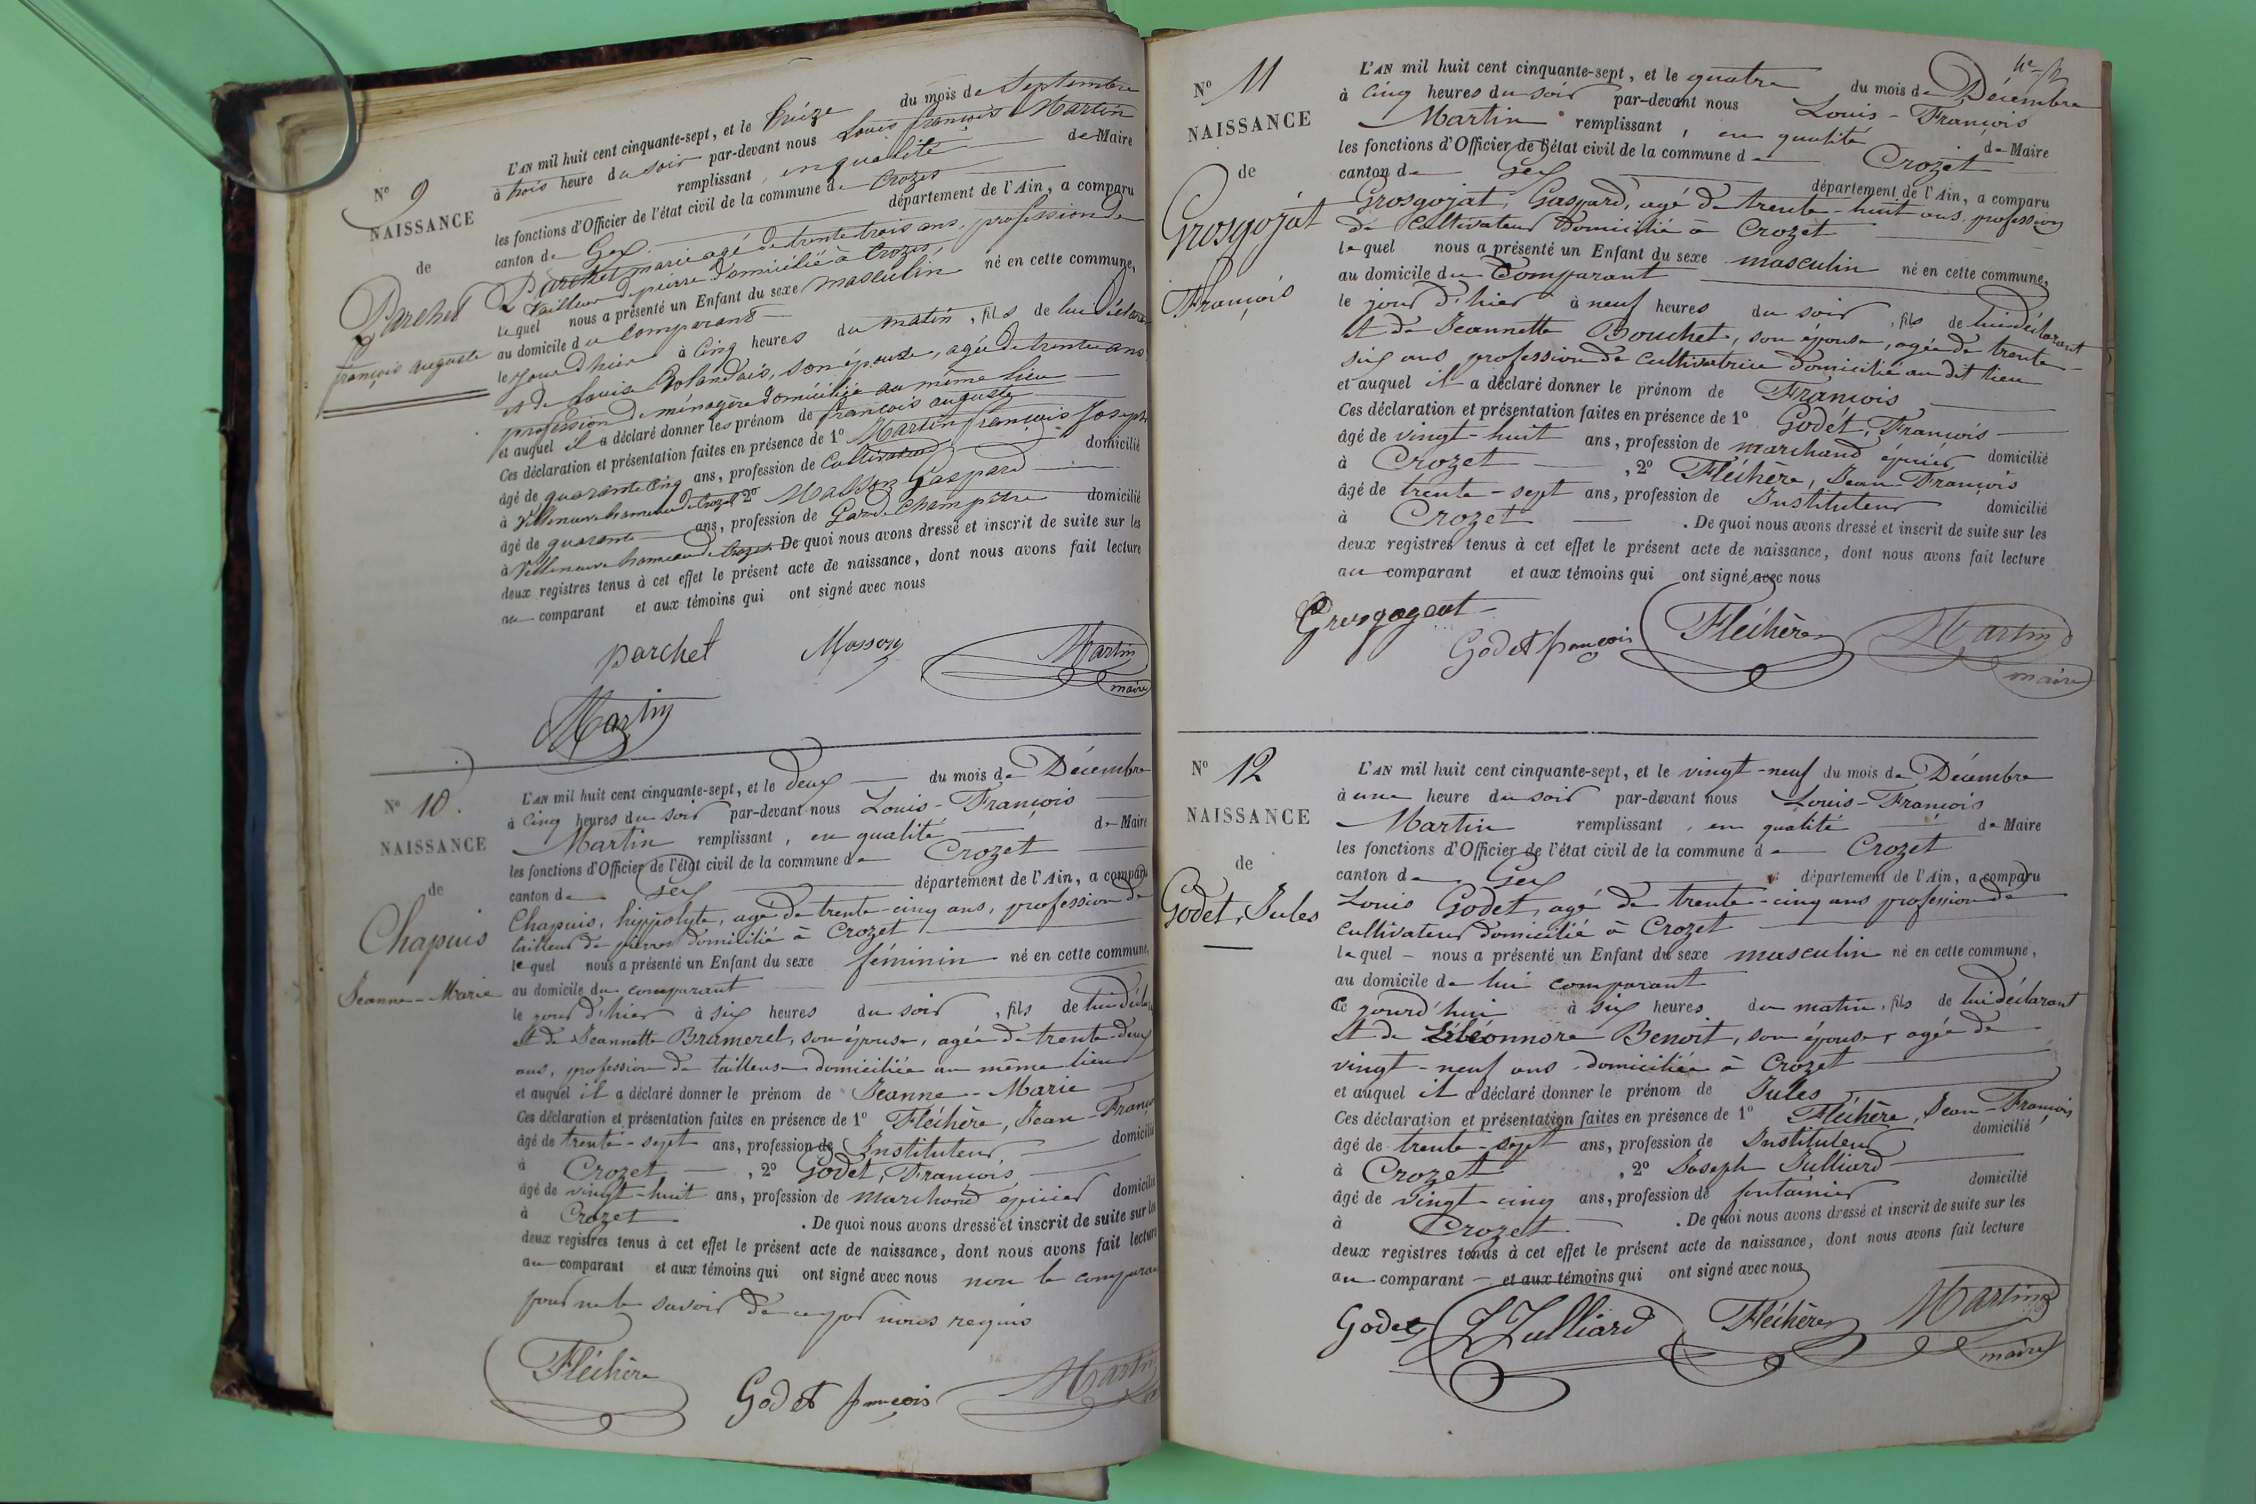 N° 9
NAISSANCE
de
Parchet
françois auguste
L'AN mil huit cent cinquante-sept, et le treize du mois de Septembre
à trois heure du soir par-devant nous Louis françois Martin
remplissant, en qualité de Maire
les fonctions d'Officier de l'état civil de la commune de Crozet
canton de Gex département de l'Ain, a comparu
Parchet marie agé de trente trois ans, profession de
tailleur de pierre domicilié à Crozet,
lequel nous a présenté un Enfant du sexe masculin né en cette commune,
au domicile du comparant
le jour d'hier à Cinq heures du matin, fils de lui déclarant
et de Louise Rolandais, son épouse, agée de trente ans
profession de ménagère domiciliée au même lieu
et auquel il a déclaré donner les prénom de françois auguste
Ces déclaration et présentation faites en présence de 1° Martin françois Joseph
âgé de quarante cinq ans, profession de Cultivateur domicilié
à Villeneuve hameau de Crozet 2° Masson Gaspard
âgé de quarante ans, profession de Garde Champêtre domicilié
à Villeneuve hameau de Crozet. De quoi nous avons dressé et inscrit de suite sur les
deux registres tenus à cet effet le présent acte de naissance, dont nous avons fait lecture
au comparant et aux témoins qui ont signé avec nous
parchet Masson Martin
maire
Martin
N° 10.
NAISSANCE
de
Chapuis
Jeanne-Marie
L'AN mil huit cent cinquante-sept, et le deux du mois de Décembre
à Cinq heures du soir par-devant nous Louis-François
Martin remplissant, en qualité de Maire
les fonctions d'Officier de l'état civil de la commune de Crozet
canton de Gex département de l'Ain, a comparu
Chapuis, hippolyte, agé de trente-cinq ans, profession de
tailleur de pierres domicilié à Crozet
lequel nous a présenté un Enfant du sexe féminin né en cette commune,
au domicile du comparant
le jour d'hier à six heures du soir, fils de lui décla
et de Jeannette Bramerel, son épouse, agée de trente-deux
ans, profession de tailleuse domiciliée au même lieu
et auquel il a déclaré donner le prénom de Jeanne-Marie
Ces déclaration et présentation faites en présence de 1° Fléchère, Jean-Franço
âgé de trente-sept ans, profession de Instituteur domicilié
à Crozet, 2° Godet, François
âgé de vingt-huit ans, profession de marchand épicier domicilié
à Crozet. De quoi nous avons dressé et inscrit de suite sur les
deux registres tenus à cet effet le présent acte de naissance, dont nous avons fait lecture
au comparant et aux témoins qui ont signé avec nous non le compara
pour ne le savoir de ce par nous requis
Fléchère Godet françois Martin
N° 11
NAISSANCE
de
Grosgojat
François
L'AN mil huit cent cinquante-sept, et le quatre du mois de Décembre
à Cinq heures du soir par-devant nous Louis-François
Martin remplissant, en qualité de Maire
les fonctions d'Officier de l'état civil de la commune de Crozet
canton de Gex département de l'Ain, a comparu
Grosgojat, Gaspard, agé de trente-huit ans, profession
de Cultivateur domicilié à Crozet
lequel nous a présenté un Enfant du sexe masculin né en cette commune,
au domicile du Comparant
le jour d'hier à neuf heures du soir, fils de lui déclarant
et de Jeannette Bouchet, son épouse, agée de trente-
six ans profession de cultivatrice domicilié au dit lieu
et auquel il a déclaré donner le prénom de François
Ces déclaration et présentation faites en présence de 1° Godet, François
âgé de vingt-huit ans, profession de marchand épicier domicilié
à Crozet, 2° Fléchère, Jean-François
âgé de trente-sept ans, profession de Instituteur domicilié
à Crozet. De quoi nous avons dressé et inscrit de suite sur les
deux registres tenus à cet effet le présent acte de naissance, dont nous avons fait lecture
au comparant et aux témoins qui ont signé avec nous
Grosgogeat Godet françois Fléchère Martin
maire
N° 12
NAISSANCE
de
Godet, Jules
L'AN mil huit cent cinquante-sept, et le vingt-neuf du mois de Décembre
à une heure du soir par-devant nous Louis-François
Martin remplissant, en qualité de Maire
les fonctions d'Officier de l'état civil de la commune de Crozet
canton de Gex département de l'Ain, a comparu
Louis Godet, agé de trente-cinq ans profession de
cultivateur domicilié à Crozet
lequel nous a présenté un Enfant du sexe masculin né en cette commune,
au domicile de lui comparant
ce jourd'hui à six heures du matin, fils de lui déclarant
et de Eléonnore Benoit, son épouse, agée de
vingt-neuf ans domiciliée à Crozet
et auquel il a déclaré donner le prénom de Jules
Ces déclaration et présentation faites en présence de 1° Fléchère, Jean-François
âgé de trente-sept ans, profession de Instituteur domicilié
à Crozet, 2° Joseph Julliard
âgé de vingt-cinq ans, profession de fontainier domicilié
à Crozet. De quoi nous avons dressé et inscrit de suite sur les
deux registres tenus à cet effet le présent acte de naissance, dont nous avons fait lecture
au comparant et aux témoins qui ont signé avec nous
Godet J Julliard Fléchère Martin
maire